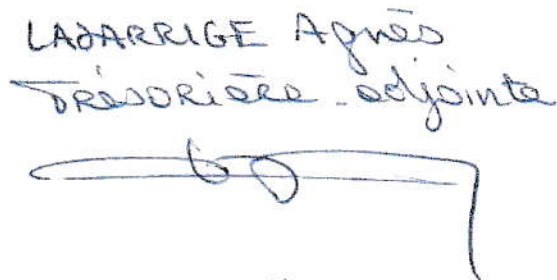 LAJARRIGE Agnès
Trésorière adjointe